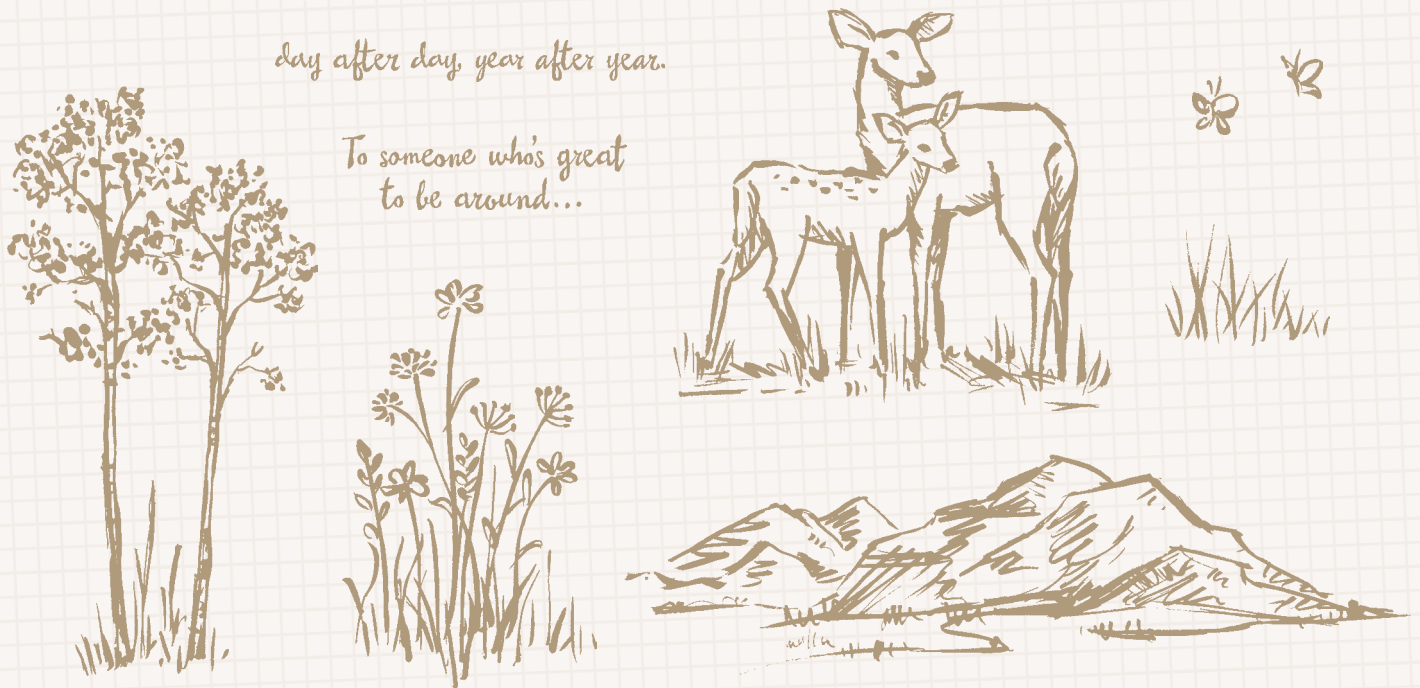 day after day, year after year.
To someone who's great
to be around...